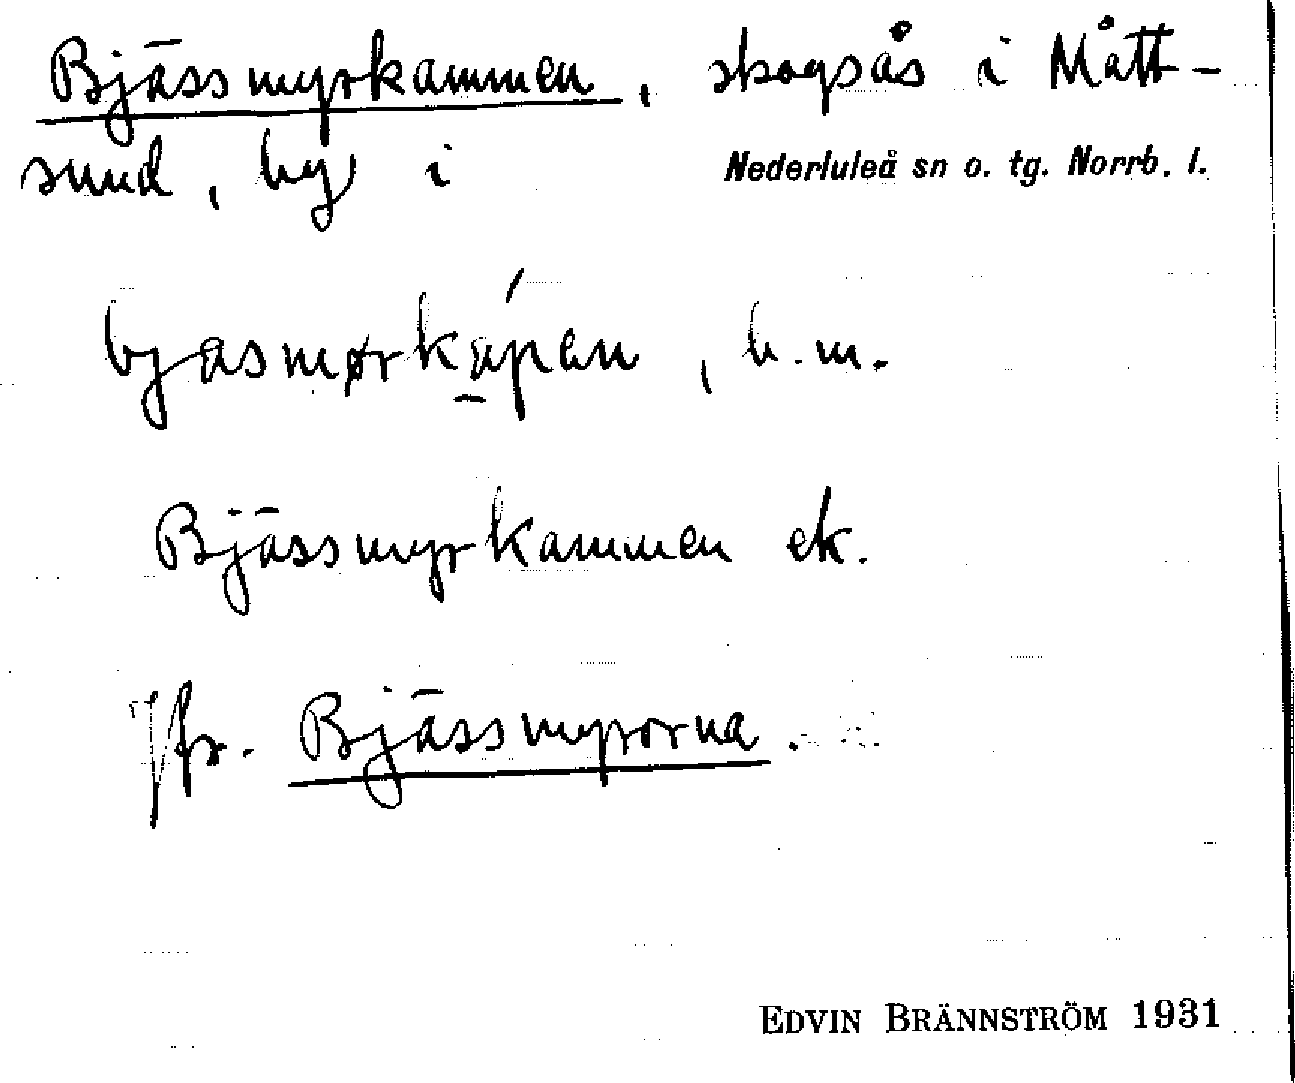 Bjässmyrkammen, skogsås i Mått-
sund, by i Nederluleå sn o. tg. Norrb. l.
bjasmørkápen, b.m.
Bjässmyrkammen ek.
Jfr. Bjässmyrorna.
EDVIN BRÄNNSTRÖM 1931